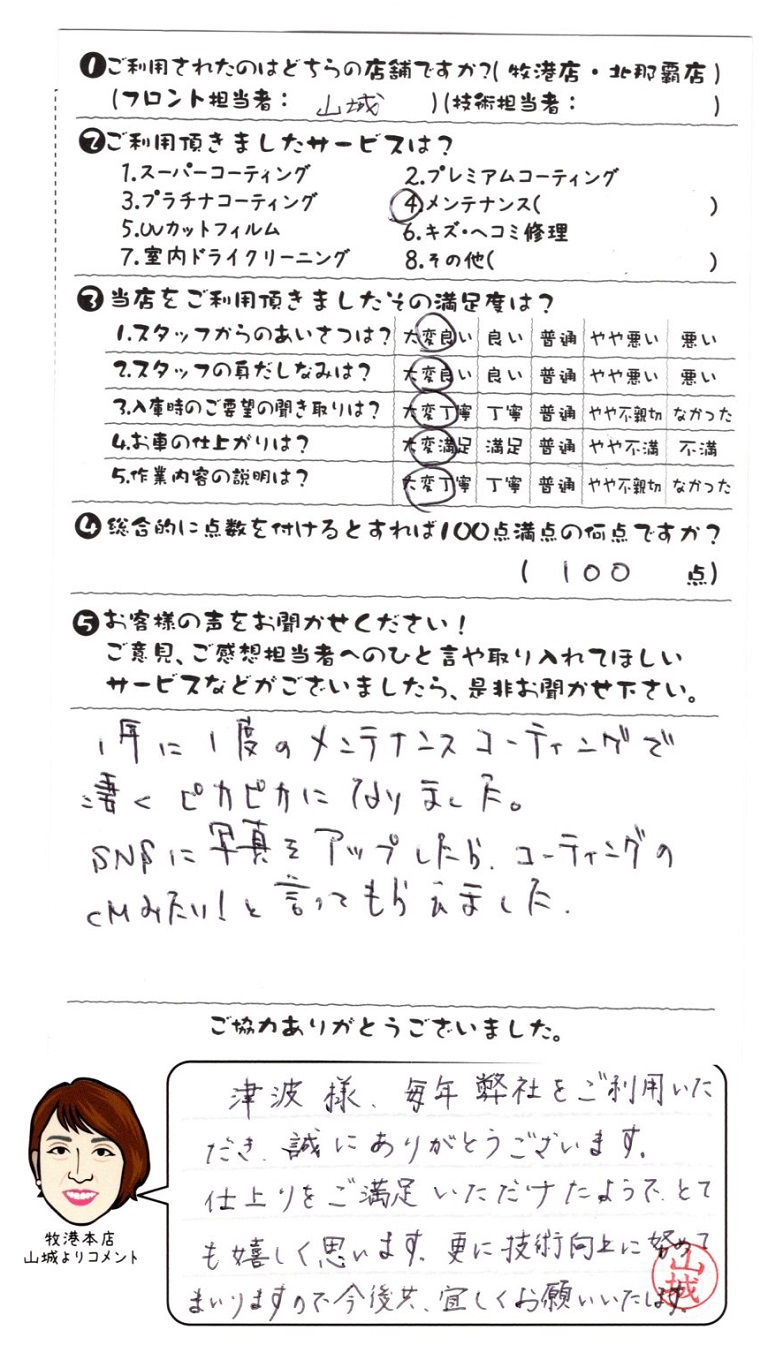 ❶ご利用されたのはどちらの店舗ですか?(牧港店・北那覇店)
(フロント担当者: 山城 )(技術担当者: )
❷ご利用頂きましたサービスは?
1.スーパーコーティング 2.プレミアムコーティング
3.プラチナコーティング 4.メンテナンス( )
5.UVカットフィルム 6.キズ・ヘコミ修理
7.室内ドライクリーニング 8.その他( )
❸当店をご利用頂きましたその満足度は?
1.スタッフからのあいさつは? 大変良い 良い 普通 やや悪い 悪い
2.スタッフの身だしなみは? 大変良い 良い 普通 やや悪い 悪い
3.入庫時のご要望の聞き取りは? 大変丁寧 丁寧 普通 やや不親切 なかった
4.お車の仕上がりは? 大変満足 満足 普通 やや不満 不満
5.作業内容の説明は? 大変丁寧 丁寧 普通 やや不親切 なかった
❹総合的に点数を付けるとすれば100点満点の何点ですか?
( 100 点)
❺お客様の声をお聞かせください!
ご意見、ご感想担当者へのひと言や取り入れてほしい
サービスなどがございましたら、是非お聞かせ下さい。
1年に1度のメンテナンスコーティングで
凄くピカピカになりました。
SNSに写真をアップしたら、コーティングの
CMみたい!と言ってもらえました.
ご協力ありがとうございました。
津波様、毎年弊社をご利用いた
だき、誠にありがとうございます。
仕上りをご満足いただけたようで、とて
も嬉しく思います。更に技術向上に努めて
まいりますので今後共、宜しくお願いいたします。
山城
牧港本店
山城よりコメント